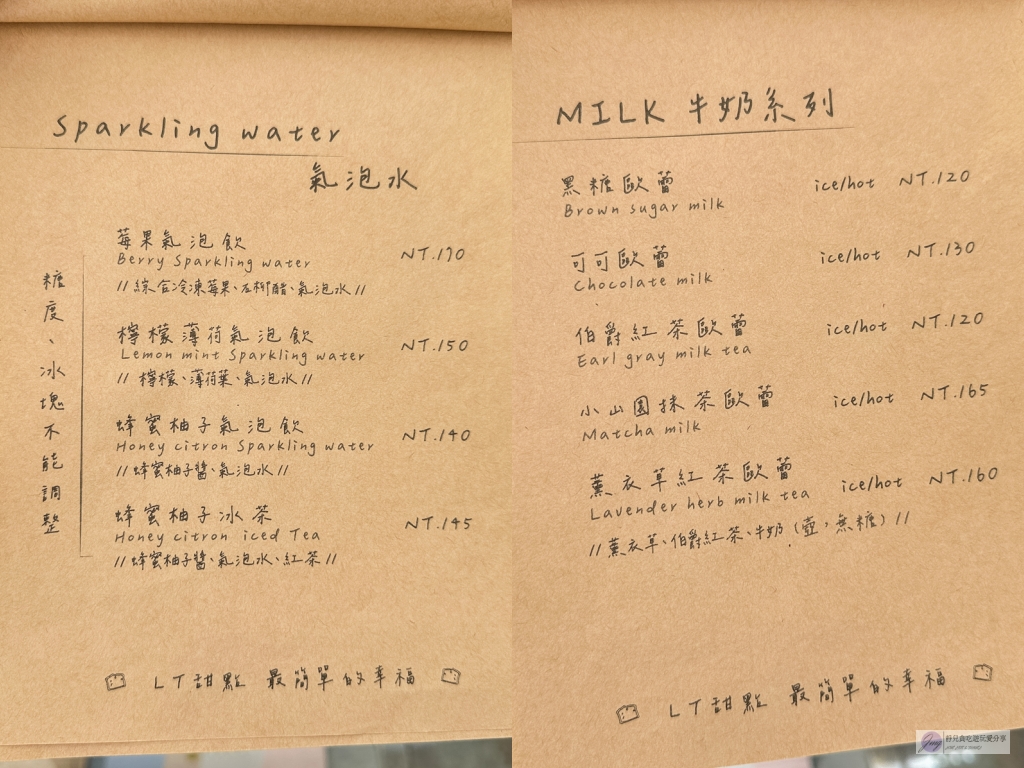 Sparkling water
氣泡水
糖度、冰塊不能調整
莓果氣泡飲
Berry Sparkling water NT.190
//綜合冷凍莓果、石柳醋、氣泡水//
檸檬薄荷氣泡飲
Lemon mint Sparkling water NT.150
//檸檬、薄荷葉、氣泡水//
蜂蜜柚子氣泡飲
Honey citron Sparkling water NT.140
//蜂蜜柚子醬、氣泡水//
蜂蜜柚子冰茶
Honey citron iced Tea NT.145
//蜂蜜柚子醬、氣泡水、紅茶//
LT甜點 最簡單的幸福
MILK 牛奶系列
黑糖歐蕾 ice/hot NT.120
Brown sugar milk
可可歐蕾 ice/hot NT.130
Chocolate milk
伯爵紅茶歐蕾 ice/hot NT.120
Earl gray milk tea
小山園抹茶歐蕾 ice/hot NT.165
Matcha milk
薰衣草紅茶歐蕾 ice/hot NT.160
Lavender herb milk tea
//薰衣草、伯爵紅茶、牛奶(壺,無糖)//
LT甜點 最簡單的幸福